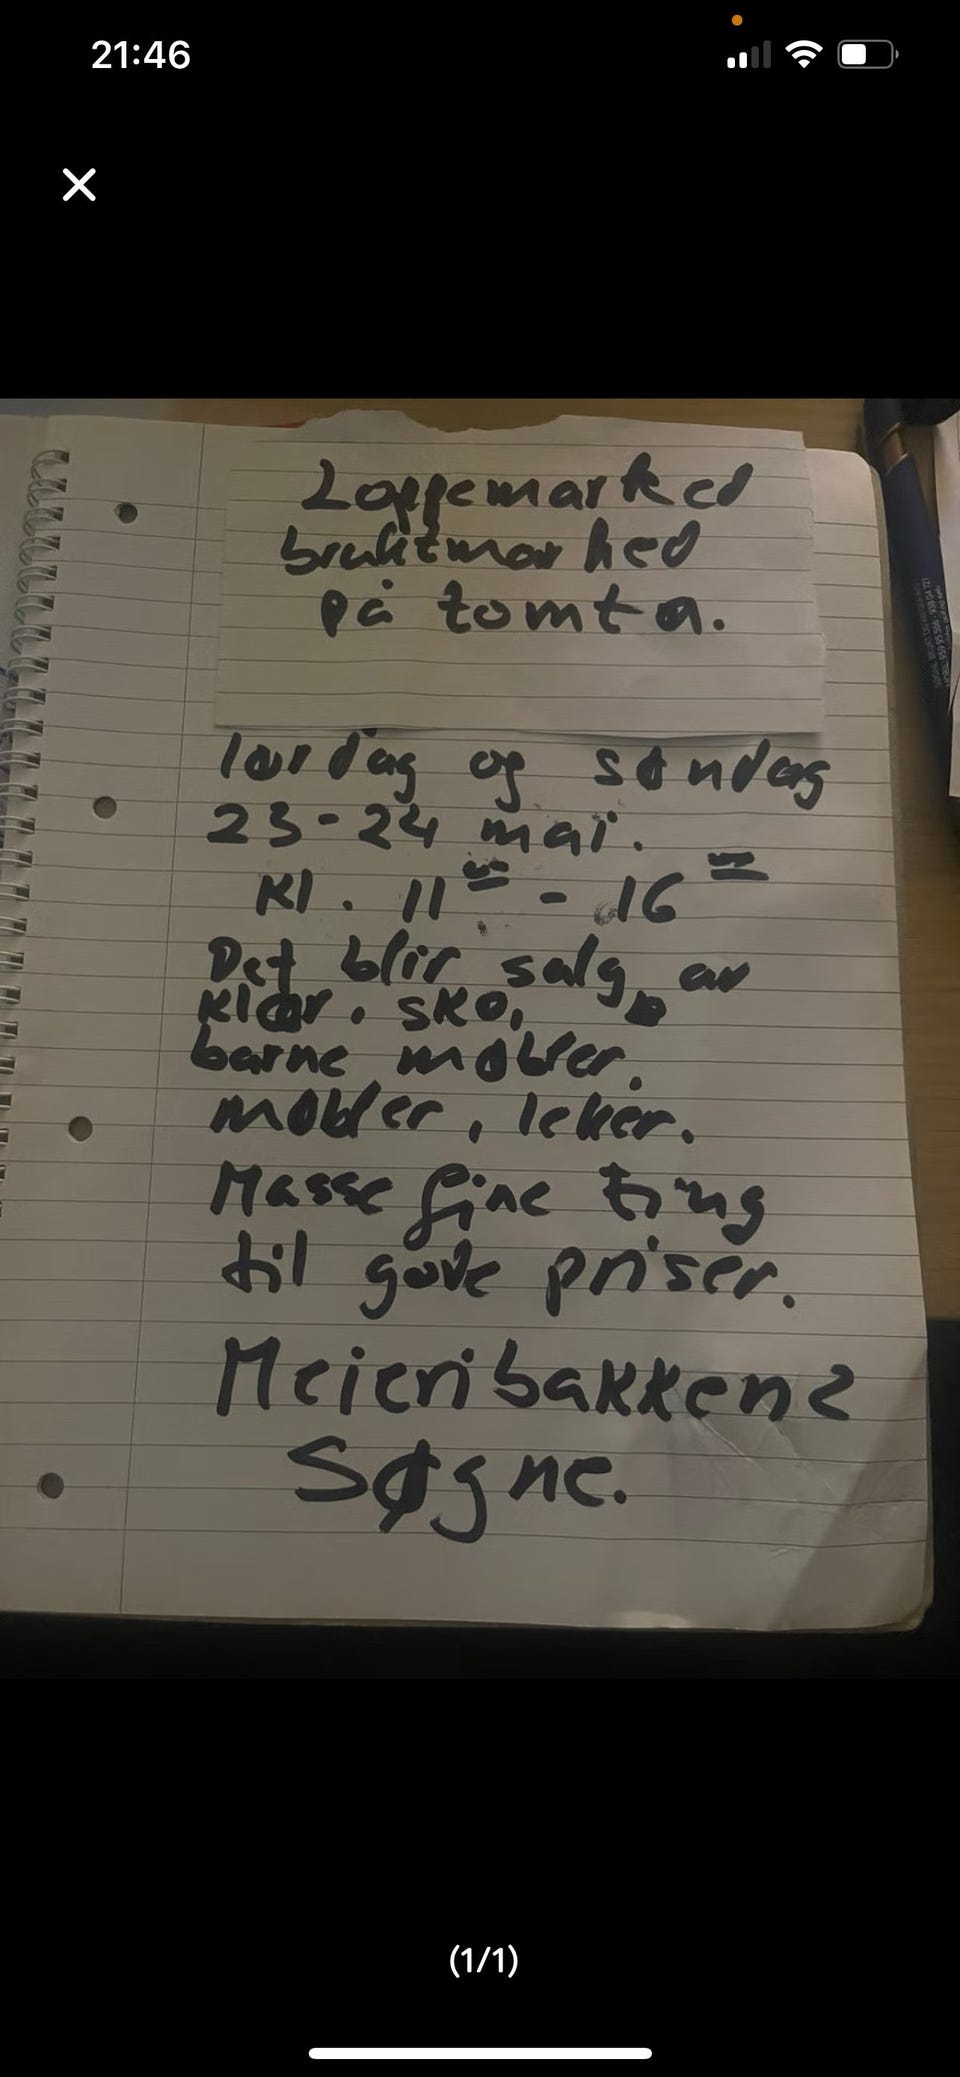 21:46
Loppemarked
bruktmarked
på tomta.
lørdag og søndag
23-24 mai.
Kl. 11 00 - 16 00
Det blir salg av
klær. sko,
barne møbler.
møbler, leker.
Masse fine ting
til gode priser.
Meieribakken 2
Søgne.
(1/1)